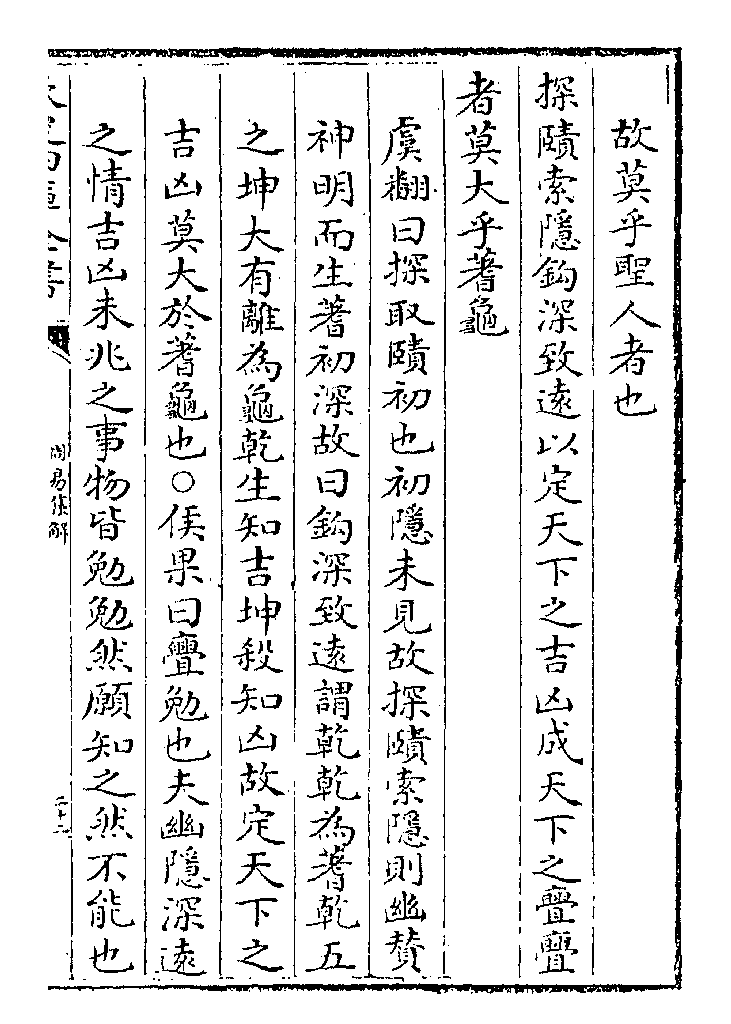 故莫乎聖人者也
探賾索隱鈎深致遠以定天下之吉凶成天下之亹亹
者莫大乎蓍龜
虞翻曰探取賾初也初隱未見故探賾索隱則幽贊
神明而生蓍初深故曰鈎深致遠謂乾乾為蓍乾五
之坤大有離為龜乾生知吉坤殺知凶故定天下之
吉凶莫大於蓍龜也○侯果曰亹勉也夫幽隱深遠
之情吉凶未兆之事物皆勉勉然願知之然不能也
周易集解